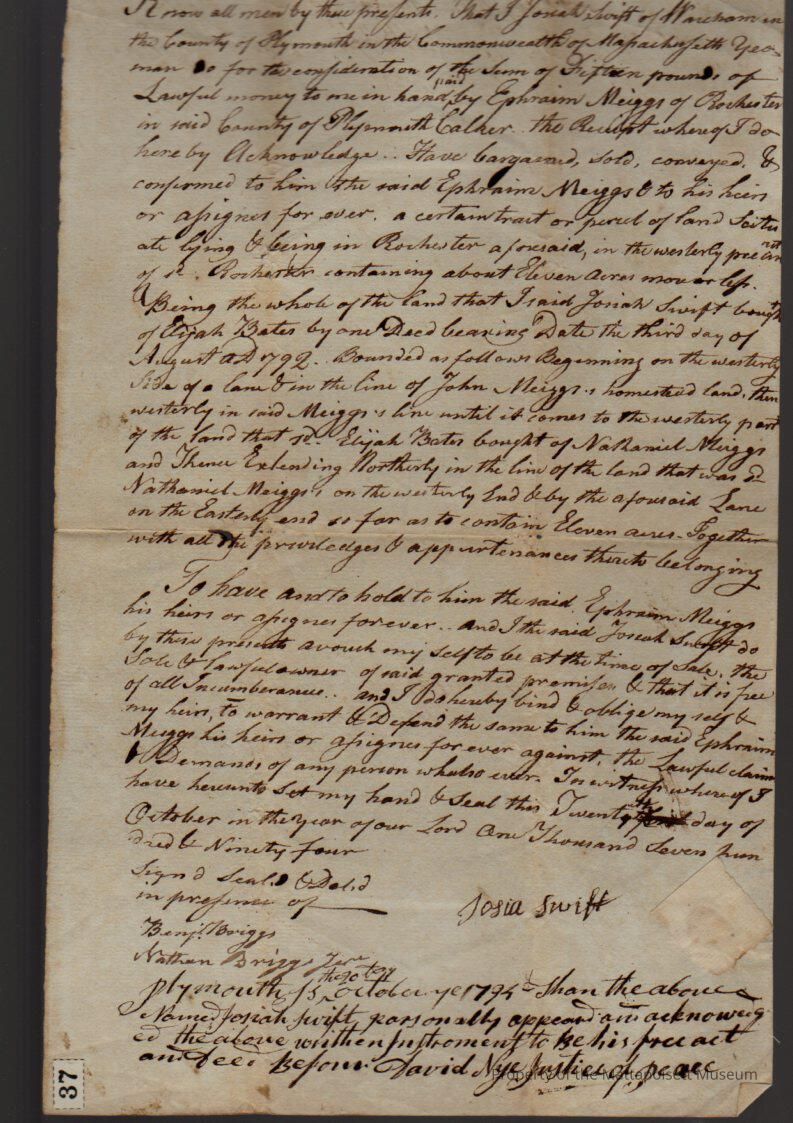 Know all men by these presents, That I Josiah Swift of Wareham in
the County of Plymouth in the Commonwealth of Massachusetts Yeo-
man Do for the consideration of the Sum of Fifteen pounds of
Lawful money to me in hand paid by Ephraim Meiggs of Rochester
in said County of Plymouth Calker.. the Receipt whereof I do
hereby Acknowledge.. Have bargained, sold, conveyed, &
confirmed to him the said Ephraim Meiggs & to his heirs
or assignes for ever. a certain tract or percel of land Scitu
ate lying & being in Rochester aforesaid, in the westerly precinct
of sd. Rochester containing about Eleven Acres more or less.
Being the whole of the land that I said Josiah Swift bought
of Elijah Bates by one Deed bearing Date the third day of
August AD 1792. Bounded as follows Beginning on the westerly
Side of a lane & in the line of John Meiggs,s homestead land, then
westerly in said Meiggs,s line until it comes to the westerly part
of the land that sd. Elijah Bates bought of Nathaniel Meiggs
and Thence Extending Northerly in the line of the land that was sd
Nathaniel Meiggs,s on the westerly End & by the aforesaid Lane
on the Easterly end so far as to contain Eleven acres - Together
with all the priviledges & appurtenances thereto belonging
To have and to hold to him the said Ephraim Meiggs
his heirs or assignes forever.. and I the said Josiah Swift do
by these presents avouch my self to be at the time of Sale, the
Sole & lawful owner of said granted premises & that it is free
of all Incumberances.. and I do hereby bind & oblige my self &
my heirs, to warrant & Defend the same to him the said Ephraim
Meiggs his heirs or assignes for ever against, the Lawful claims
& Demands of any person whatso ever. In witness where of I
have hereunto Set my hand & Seal this Twentyth day of
October in the year of our Lord One Thousand Seven hun
dred & Ninety four
Sign'd Seal.d & Del.d
in presence of
Josia Swift
Benj. Briggs
Nathan Briggs
Plymouth Ss October ye 1794 than the above
Named Josiah Swift parsonally appeard and acknoweg
ed the above written Instroment to Be his free act
and Deed Before David Nye Justice of peace
37
Property of the Mattapoisett Museum